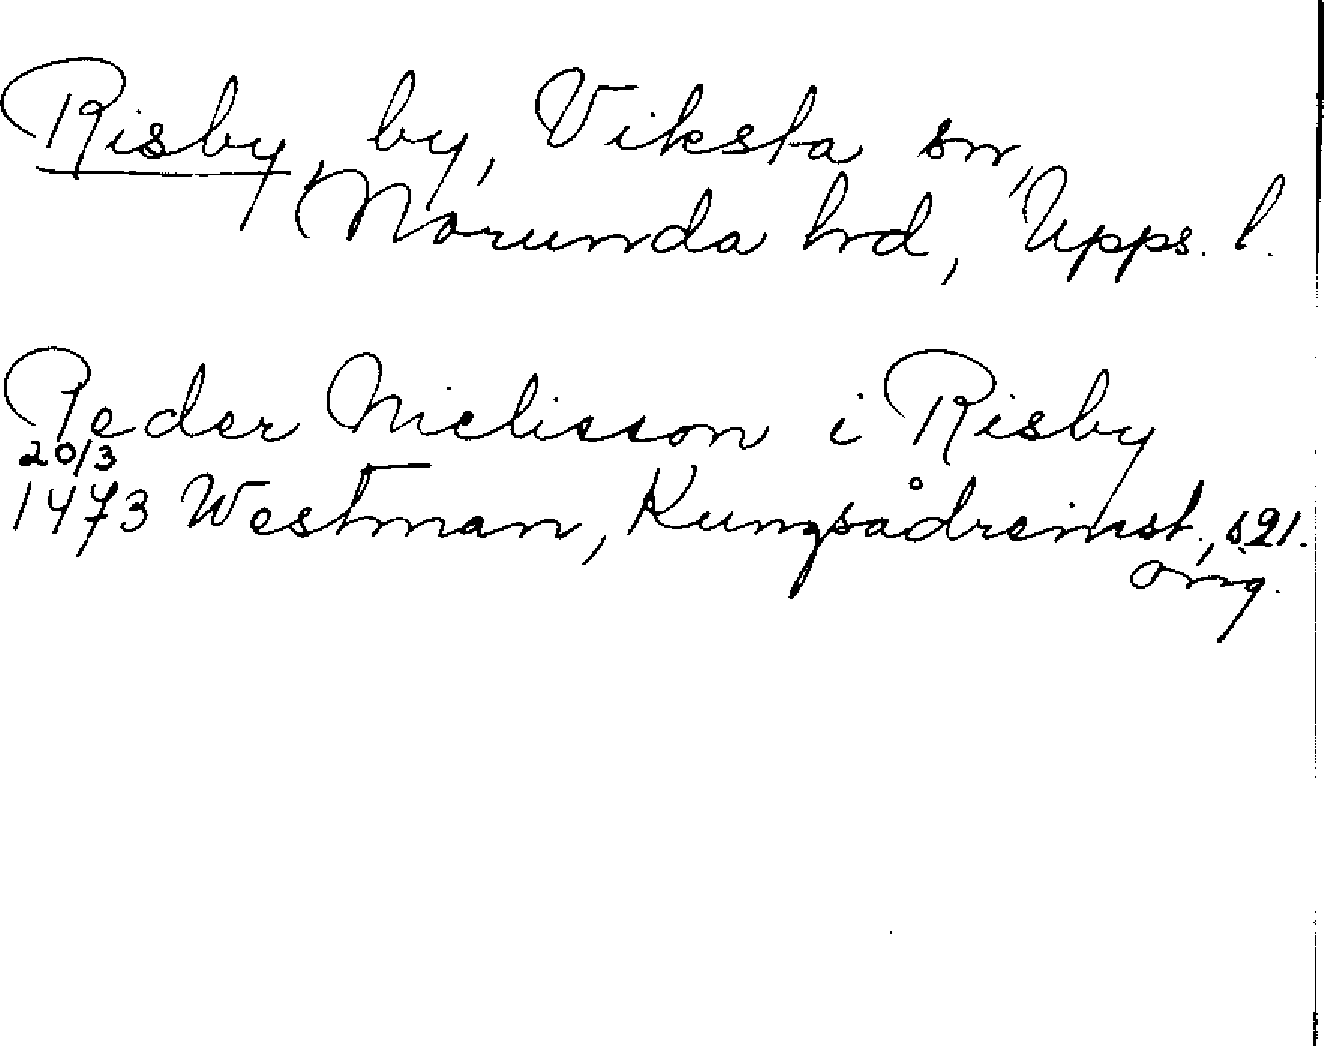 Risby, by, Viksta sn,
Norunda hrd, Upps. l.
Peder Nielisson i Risby
20/3
1473 Westman, Kungsådreinst., s. 21.
orig.